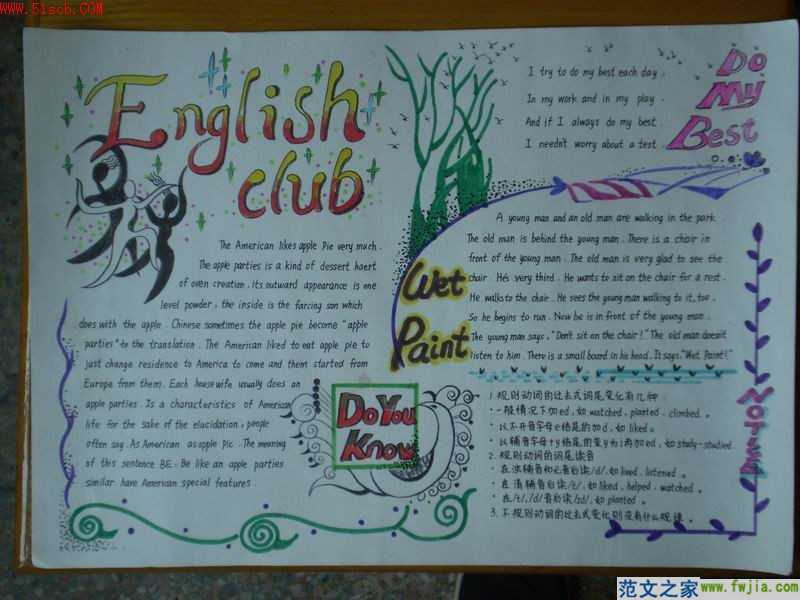 www.51scb.COM
English
club
The American likes apple pie very much.
The apple parties is a kind of dessert haert
of oven creation, its outward appearance is one
level powder, the inside is the farcing son which
does with the apple. Chinese sometimes the apple pie become "apple
parties" to the translation. The American liked to eat apple pie to
just change residence to America to come and them started from
Europe from them. Each housewife usually does an
apple parties. Is a characteristics of American
life for the sake of the elucidation, people
often say. As American as apple pic. The meaning
of this sentence BE: Be like an apple parties
similar have American special features.
Do You
Know
I try to do my best each day.
In my work and in my play.
And if I always do my best.
I needn't worry about a test.
Do
My
Best
Wet
Paint
A young man and an old man are walking in the park.
The old man is behind the young man. There is a chair in
front of the young man. The old man is very glad to see the
chair. He's very third. He wants to sit on the chair for a rest.
He walks to the chair. He sees the young man walking to it, too.
So he begins to run. Now be is in front of the young man.
The young man says, "Don't sit on the chair!" The old man doesn't
listen to him. There is a small board in his head. It says. "Wet, Paint!"
1. 规则动词的过去式词尾变化有几种
·一般情况下加ed, 如watched, planted, climbed。
·以不开音字母e结尾的加d, 如liked。
·以辅音字母+y结尾的变y为i再加ed, 如study-studied
2. 规则动词的词尾读音
·在浊辅音和元音后读/d/, 如lived, listened。
·在清辅音后读/t/, 如liked, helped, watched。
·在/t/, /d/音后读/id/, 如planted。
3. 不规则动词的过去式变化则没有什么规律。
范文之家 www.fwjia.com